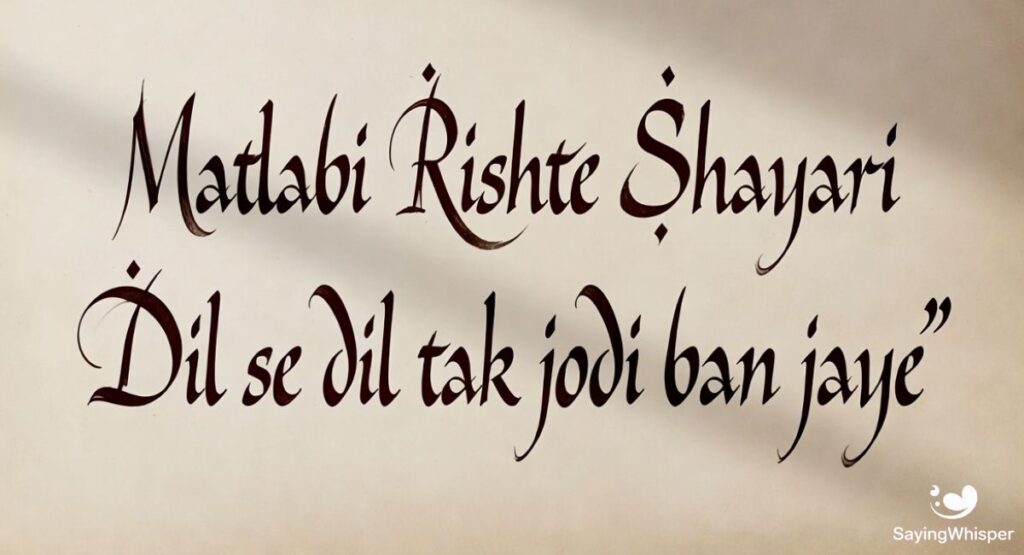 Matlabi Rishte Shayari
Dil se dil tak jodi ban jaye”
SayingWhisper